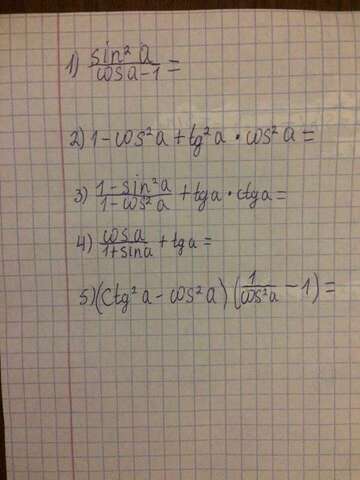 1) sin² a / cos a - 1 =
2) 1 - cos² a + tg² a · cos² a =
3) 1 - sin² a / 1 - cos² a + tg a · ctg a =
4) cos a / 1 + sin a + tg a =
5) (ctg² a - cos² a) (1 / cos² a - 1) =